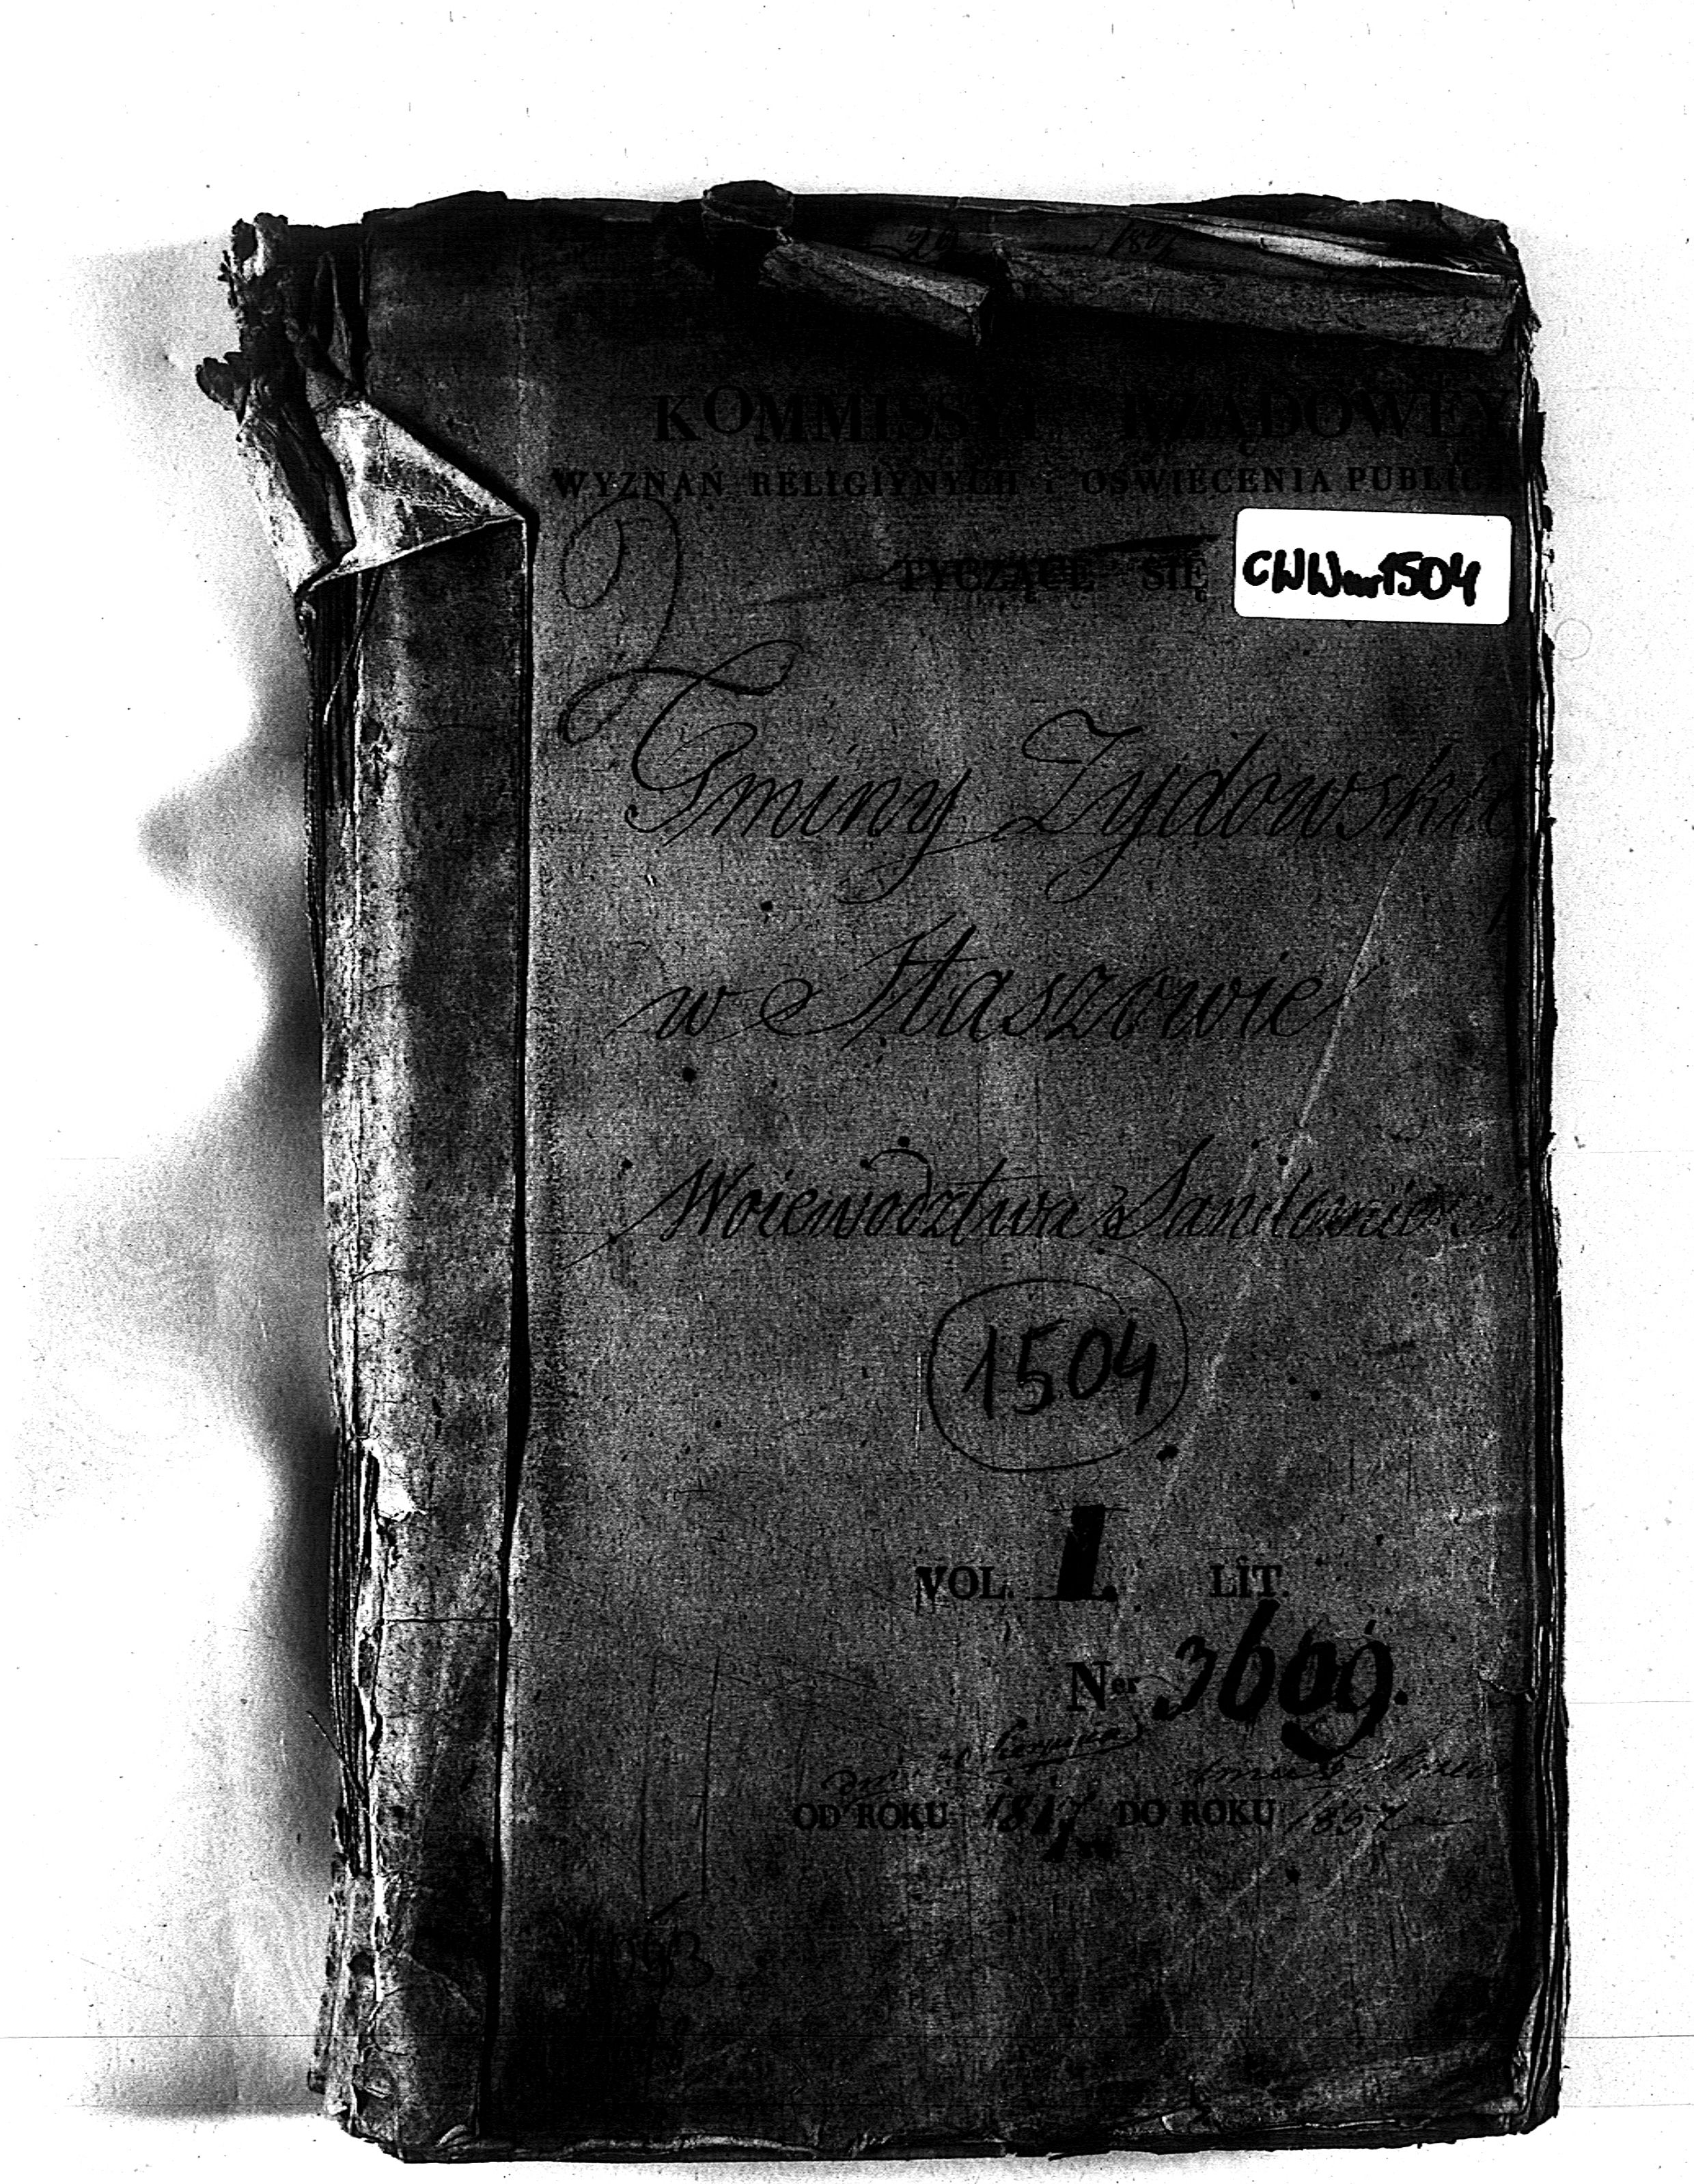 KOMMISSYI RZĄDOWEY
WYZNAŃ RELIGIYNYCH i OŚWIECENIA PUBLIC
TYCZĄCE SIĘ
CWW nr 1504
Gminy Zydowskie
w Staszowie
Woiewodztwa Sandomiersk
1504
VOL. I. LIT.
Ner 3609.
OD ROKU 1817 DO ROKU 1857